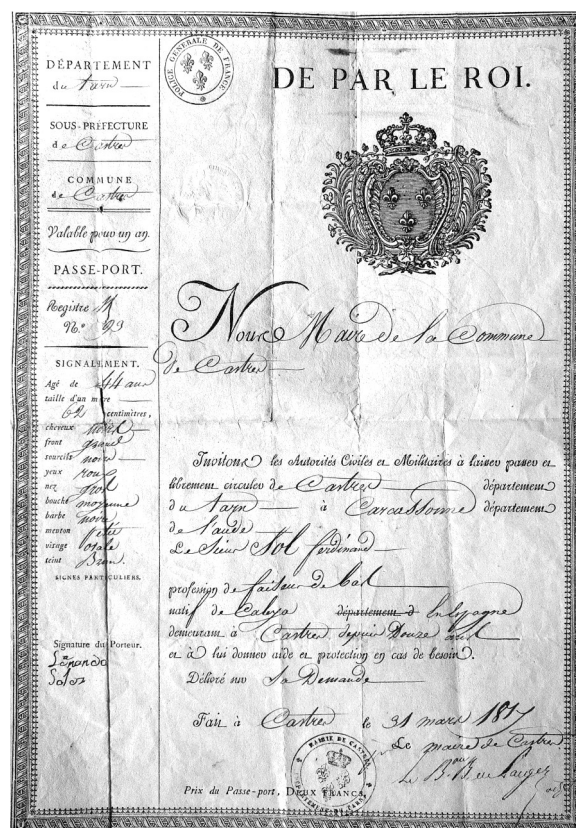 DÉPARTEMENT
du tarn
SOUS-PRÉFECTURE
de Castres
COMMUNE
de Castres
Valable pour un an.
PASSE-PORT.
Registre M
N.º
SIGNALEMENT.
Agé de 44 ans
taille d'un mètre
62 centimètres,
cheveux noirs
front grand
sourcils noirs
yeux roux
nez gros
bouche moyenne
barbe noire
menton
visage ovale
teint Brun.
SIGNES PARTICULIERS.
Signature du Porteur.
POLICE GENERALE DE FRANCE
DE PAR LE ROI.
Nous Maire de la Commune
de Castres
Invitons les Autorités Civiles et Militaires à laisser passer et
librement circuler de Castres département
du tarn à Carcassonne département
de l'aude
Le Sieur Sol ferdinand
profession de faiseur de bas
natif de département d Espagne
demeurant à Castres depuis Douze ans
et à lui donner aide et protection en cas de besoin.
Délivré sur Sa Demande
Fait à Castres le 31 mars 1817
Le maire de Castres
MAIRIE DE CASTRES
Prix du Passe-port, DEUX FRANCS.